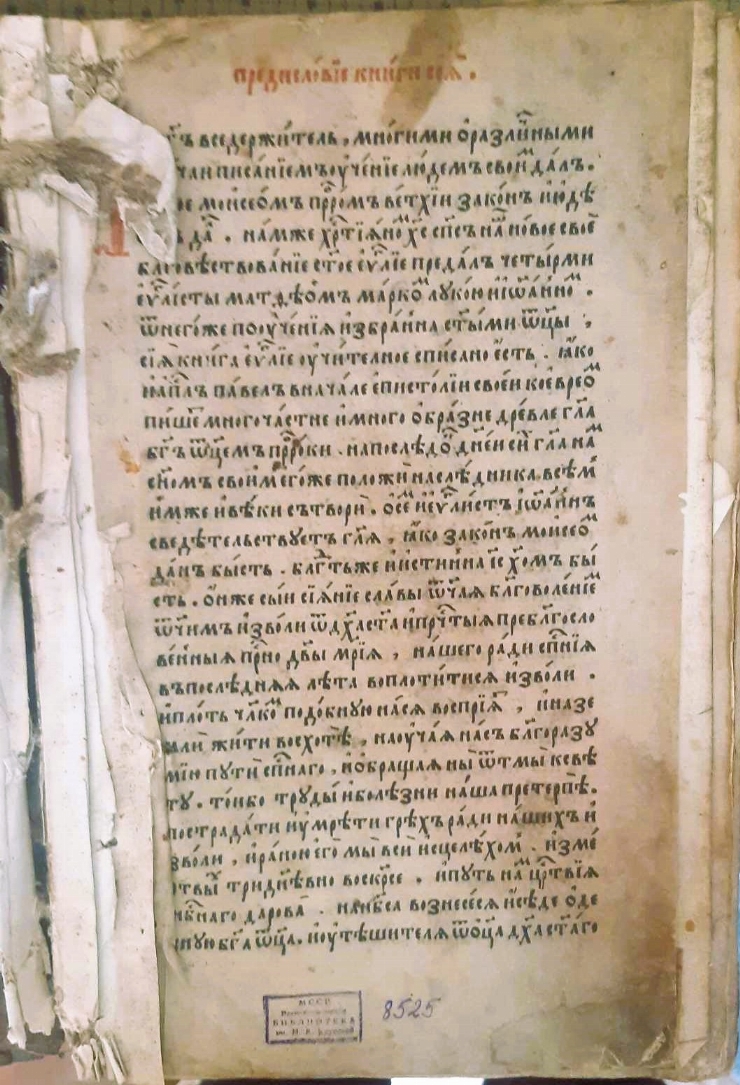 предисло́вїе кни́ги сеѧ̀ .
вседержи́тель , мно́гими и҆разли́чными
писа́нїемъ оу҆че́нїе лю́демъ свои҆м да́лъ .
мои҆сео́мъ прⷪ҇ро́мъ ве́тхїи зако́нъ и҆ю҆дѣ
да̀ . на́мже хрⷭ҇тїѧ́но хс҃ сп҃съ на́ш но́вое своѐ
благовѣствова́нїе ст҃о́е є҆ѵⷢ҇лїе преда́лъ четы́рми
є҆ѵⷢ҇ли́сты матѳе́омъ ма́ркоⷨ лꙋко́ю и҆і҆ѡа́нноⷨ .
ѿнего́же поꙋче́нїѧ и҆збра́нна ст҃ы́ми ѿц҃ы̀ ,
сїѧ̀ кни́га є҆ѵⷢ҇лїе оу҆чи́телное спи́сано є҆́сть . ꙗ҆́ко
па́велъ внача́ле є҆писто́лїи свое́й коє҆вре́оⷨ
пи́шеⷮ многоча́стне и҆мно́го о҆бра́зне дре́вле гл҃а
бг҃ъ ѿц҃е́мъ прⷪ҇ро́ки . напослѣ́доⷦ҇ дне́й си́хъ гл҃а на́мъ
сн҃омъ свои́мъ є҆го́же положѝ наслѣ́дника всѣ́мъ
и҆́мже и҆вѣ́ки сътворѝ . ѡ҆се́м и҆є҆ѵⷢ҇ли́стъ і҆ѡа́ннъ
сведѣ́тельствꙋетъ гл҃ѧ , ꙗ҆́ко зако́нъ мои҆сео́мъ
да́нъ бы́сть . блгⷣть же и҆и҆́стинна і҆с хм҃ъ бы́
сть . о҆́нже сы́и сїѧ́нїе сла́вы ѿч҃аѧ бл҃говоле́нїеⷨ
ѿч҃имъ и҆зво́ли ѿдх҃а ст҃а и҆прⷱ҇тыѧ преблг҃осло
ве́нныѧ прⷭ҇но дв҃ы мр҃їѧ , на́шего ра́ди сп҃нїѧ
въпослѣ́днѧѧ лѣ́та воплоти́тисѧ и҆зво́ли .
и҆пло́ть чл҃кꙋ подо́бнꙋю на́сѧ воспрїѧ́т , и҆назе
млѝ жи́ти восхотѣ̀ , наоуча́ѧ на́съ бл҃горазꙋ
мїю пꙋтѝ сп҃наго , и҆ѡ҆браща́ѧ ны̀ ѿтмы̀ ксвѣ́
тꙋ . то́ибо трꙋды̀ и҆болѣ́зни на́ша претерпѣ̀ .
пострада́ти и҆ꙋмре́ти грѣ́хъ ра́ди на́шихъ и҆
зво́ли , и҆ра́ною є҆го̀ мы̀ всѝ и҆сцелѣ́хом . и҆зме́
ртвыⷯ тридне́вно воскрⷭ҇е . и҆пꙋ́ть на́мъ црⷭ҇твїѧ
нбⷭ҇наго дарова̀ . нан҃бса вознесе́сѧ и҆сѣ́де о҆де
снꙋ́ю бг҃а ѿц҃а , и҆оу҆тѣ́шителѧ ѿѻ҆ц҃а дх҃а ст҃а́го
МССР
БИБЛИОТЕКА
8525